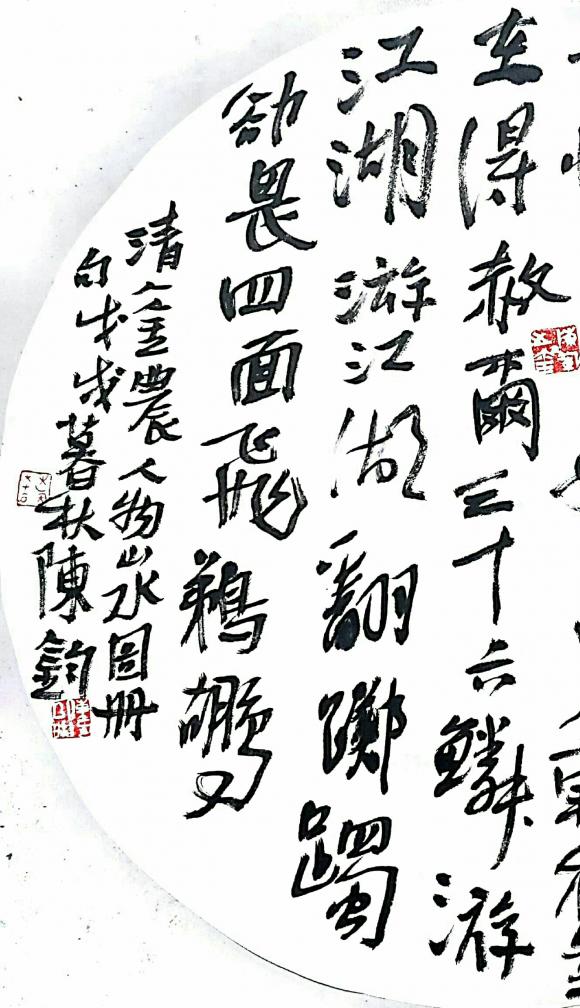 在得赦爾三十六鱗游
江湖游江湖翻躑躅
卻畏四面飛鵜鶘又
清金農人物山水圖冊
句戊戌暮秋陳鈞